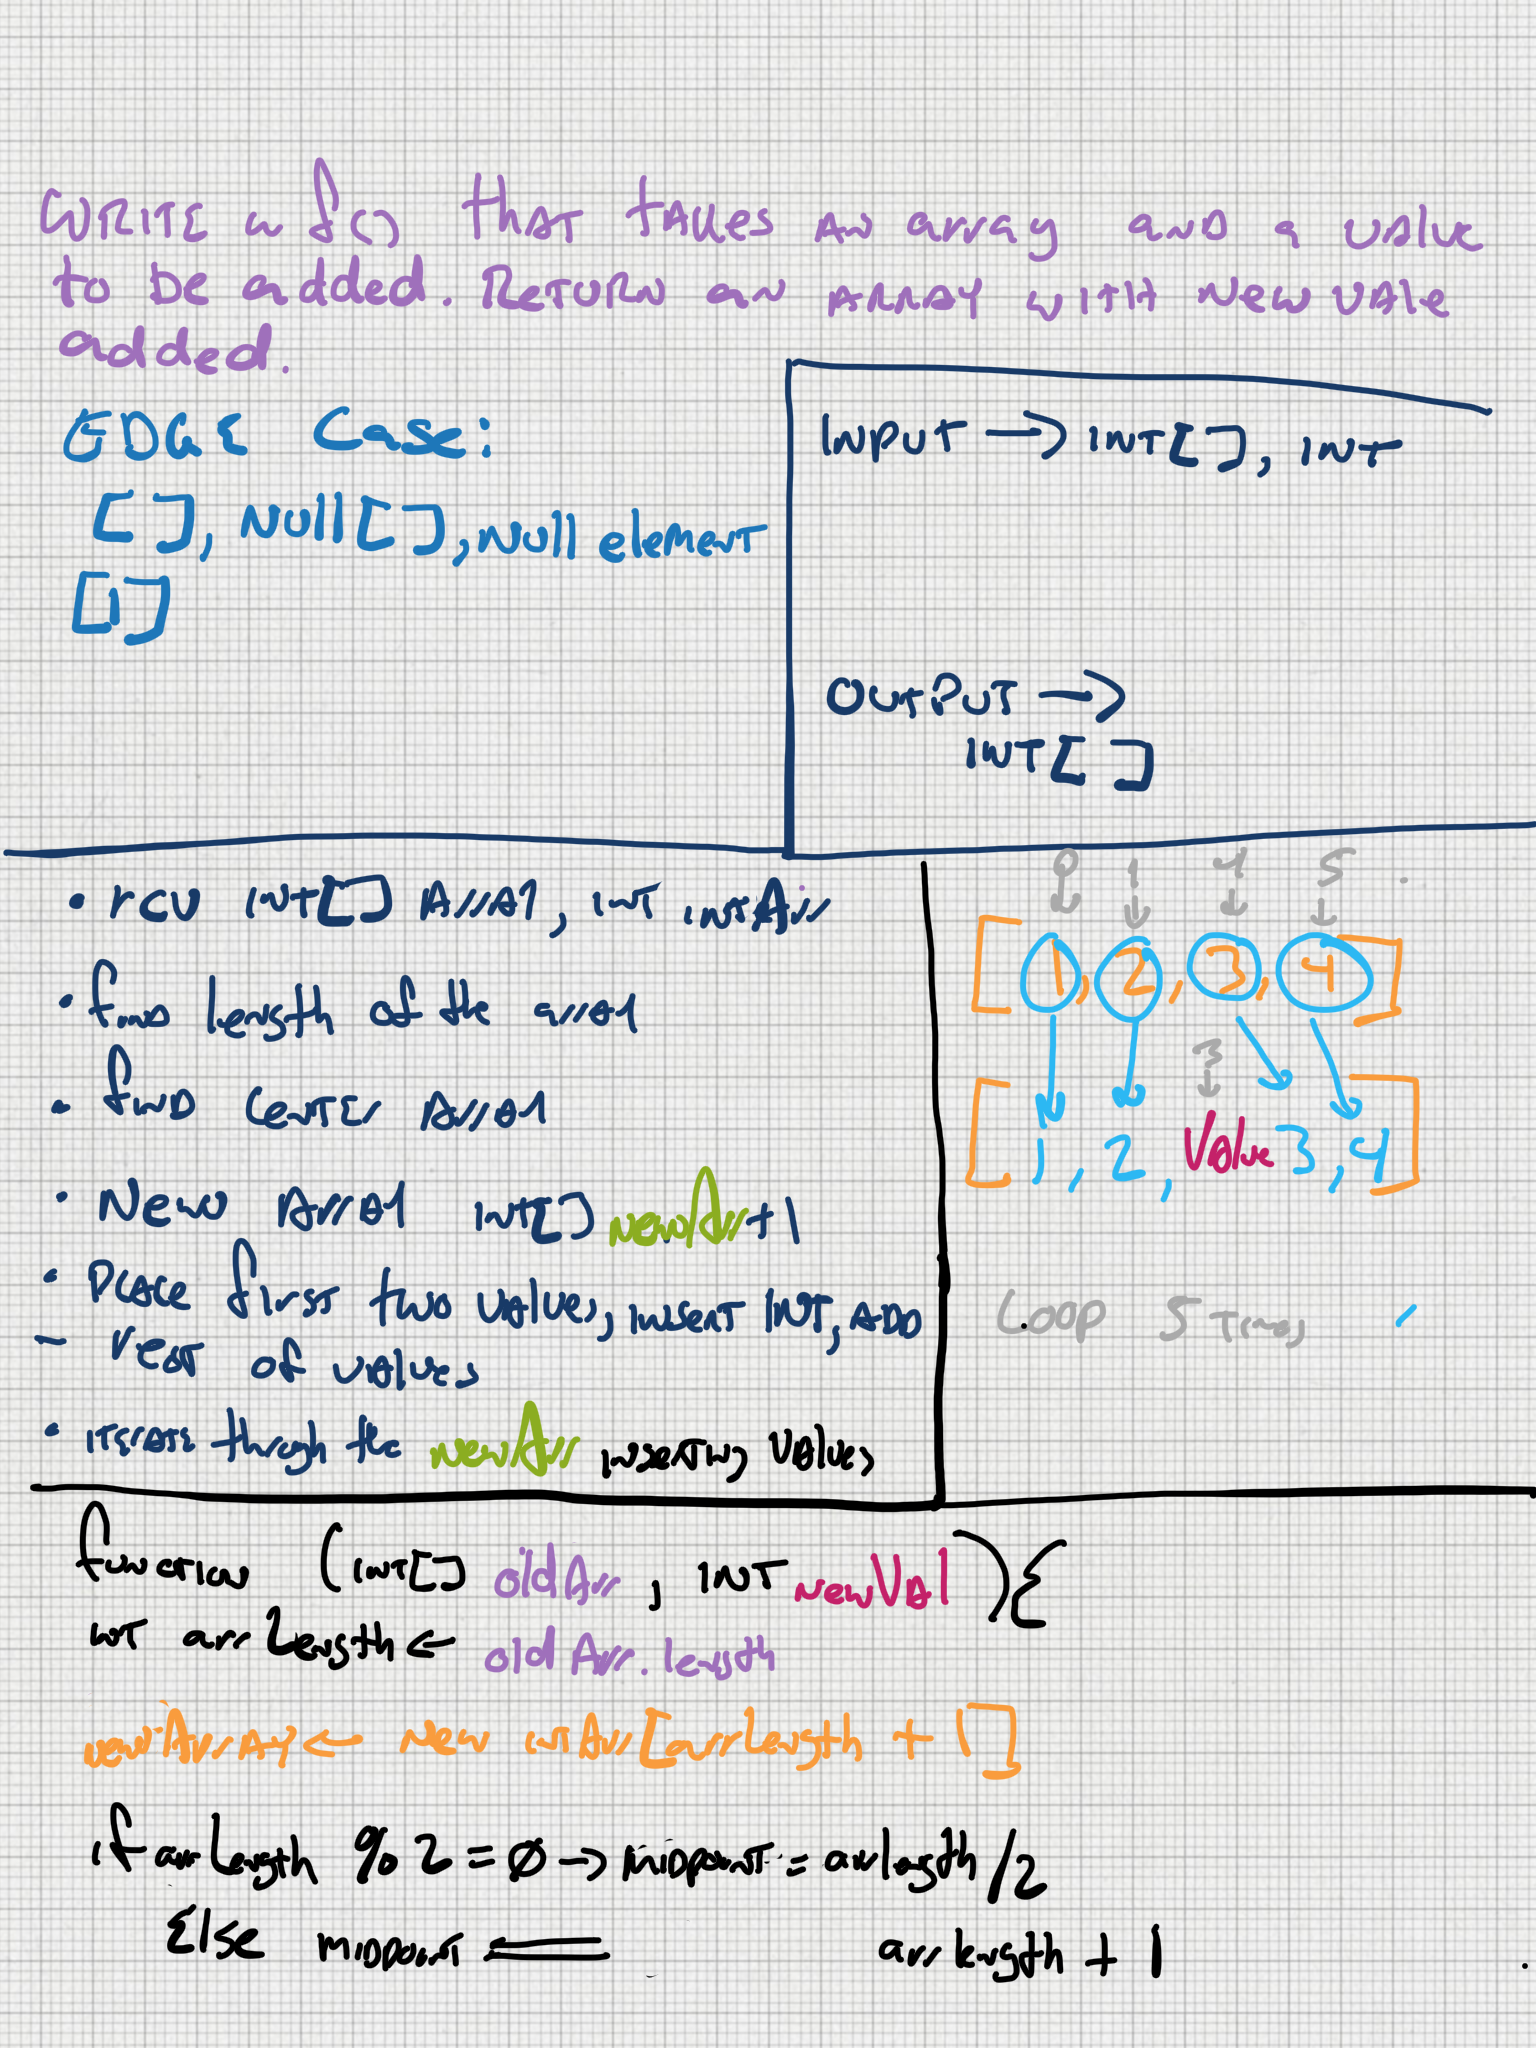 WRITE a f() that takes an array and a value
to be added. Return an array with new vale
added.
EDGE Case:
[ ], Null[ ], Null element
[1]
INPUT → INT[ ], INT
OUTPUT →
INT[ ]
• rcv INT[] Array, INT intArr
• find length of the array
• find center array
• New Array int[] newArr+1
• Place first two values, insert INT, ADD
– rest of values
• iterate throgh the newArr inserting values
0 1 4 5
[1, 2, 3, 4]
3
[1, 2, Value 3, 4]
Loop 5 times
function (INT[] oldArr, INT newVal){
int arrLength ← oldArr.length
newArray ← New intArr[arrLength + 1]
if arrLength % 2 = 0 → midpoint = arrlength/2
Else midpoint = arrlength + 1